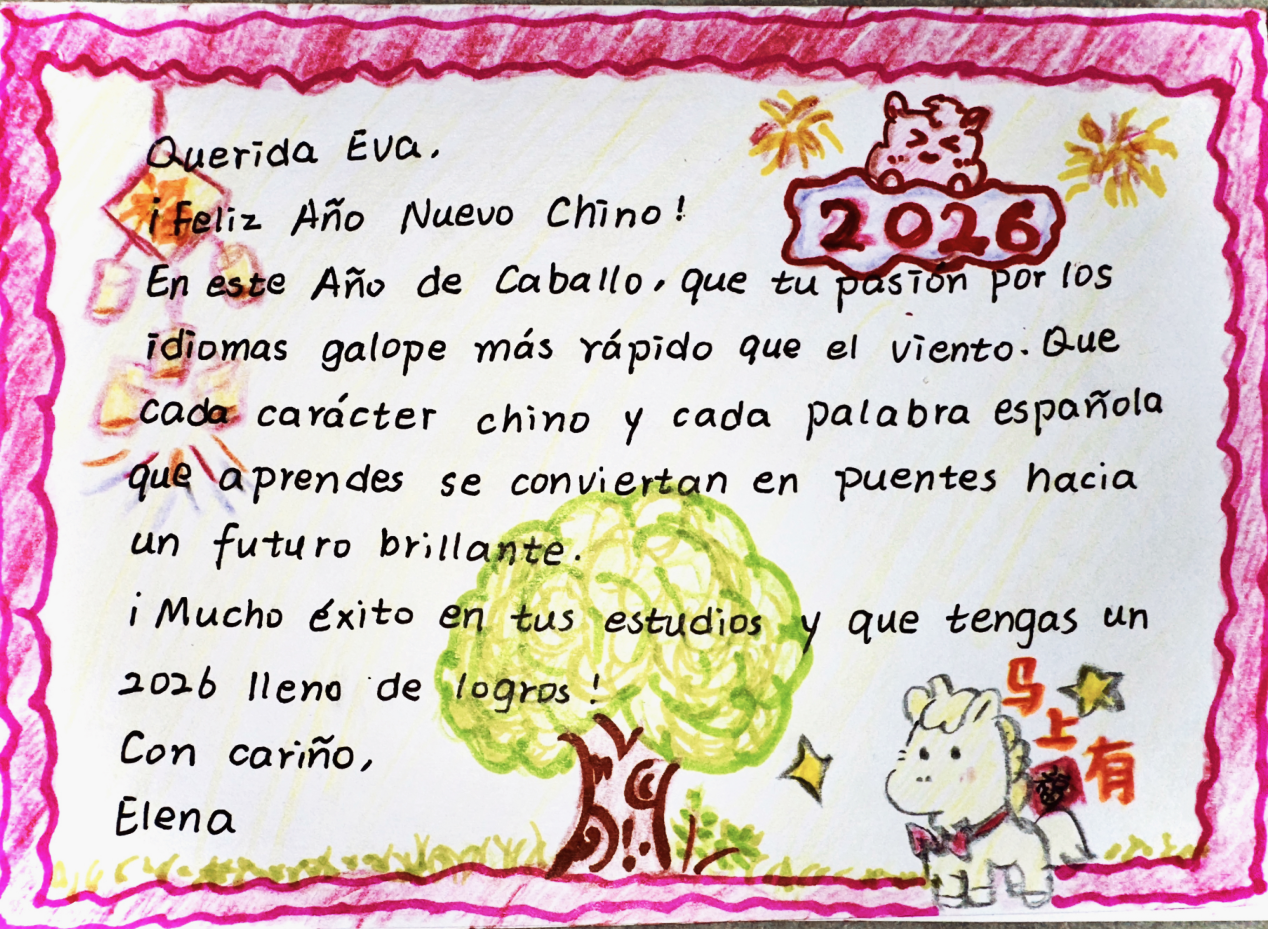 Querida Eva.
¡Feliz Año Nuevo Chino!
2026
En este Año de Caballo, que tu pasión por los
idiomas galope más rápido que el viento. Que
cada carácter chino y cada palabra española
que aprendes se conviertan en puentes hacia
un futuro brillante.
¡Mucho éxito en tus estudios y que tengas un
2026 lleno de logros!
Con cariño,
Elena
马上有